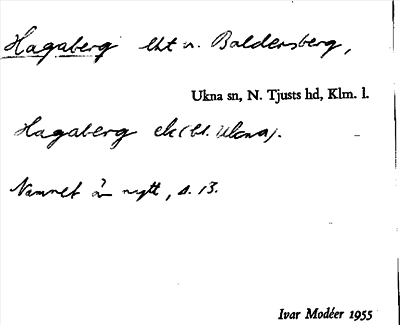 Hagaberg lht n. Baldersberg,
Ukna sn, N. Tjusts hd, Klm. l.
Hagaberg ek (bl. Ukna).
Namnet är nytt, s. 13.
Ivar Modéer 1955